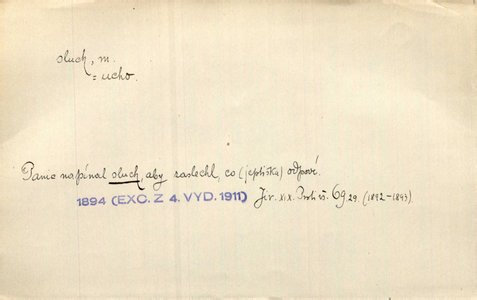 sluch, m.
= ucho.
Panic napínal sluch, aby zaslechl, co (jeptiška) odpoví.
1894 (EXC. Z 4. VYD. 1911) Jir. XIX. Proti vš. 69, 29. (1892-1893).